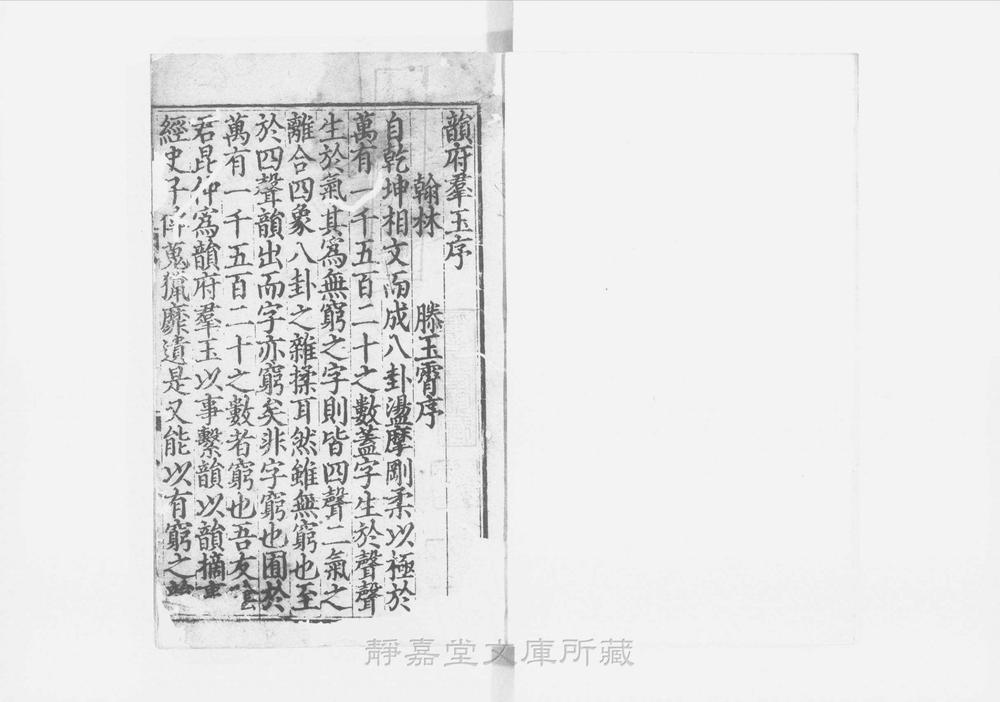 韻府羣玉序
翰林 滕玉霄序
自乾坤相文而成八卦盪摩剛柔以極於
萬有一千五百二十之數蓋字生於聲聲
生於氣其爲無窮之字則皆四聲二氣之
離合四象八卦之雜揉耳然雖無窮也至
於四聲韻出而字亦窮矣非字窮也囿於
萬有一千五百二十之數者窮也吾友
君昆仲爲韻府羣玉以事繫韻以韻摘事
經史子 蒐獵靡遺是又能以有窮之
靜嘉堂文庫所藏